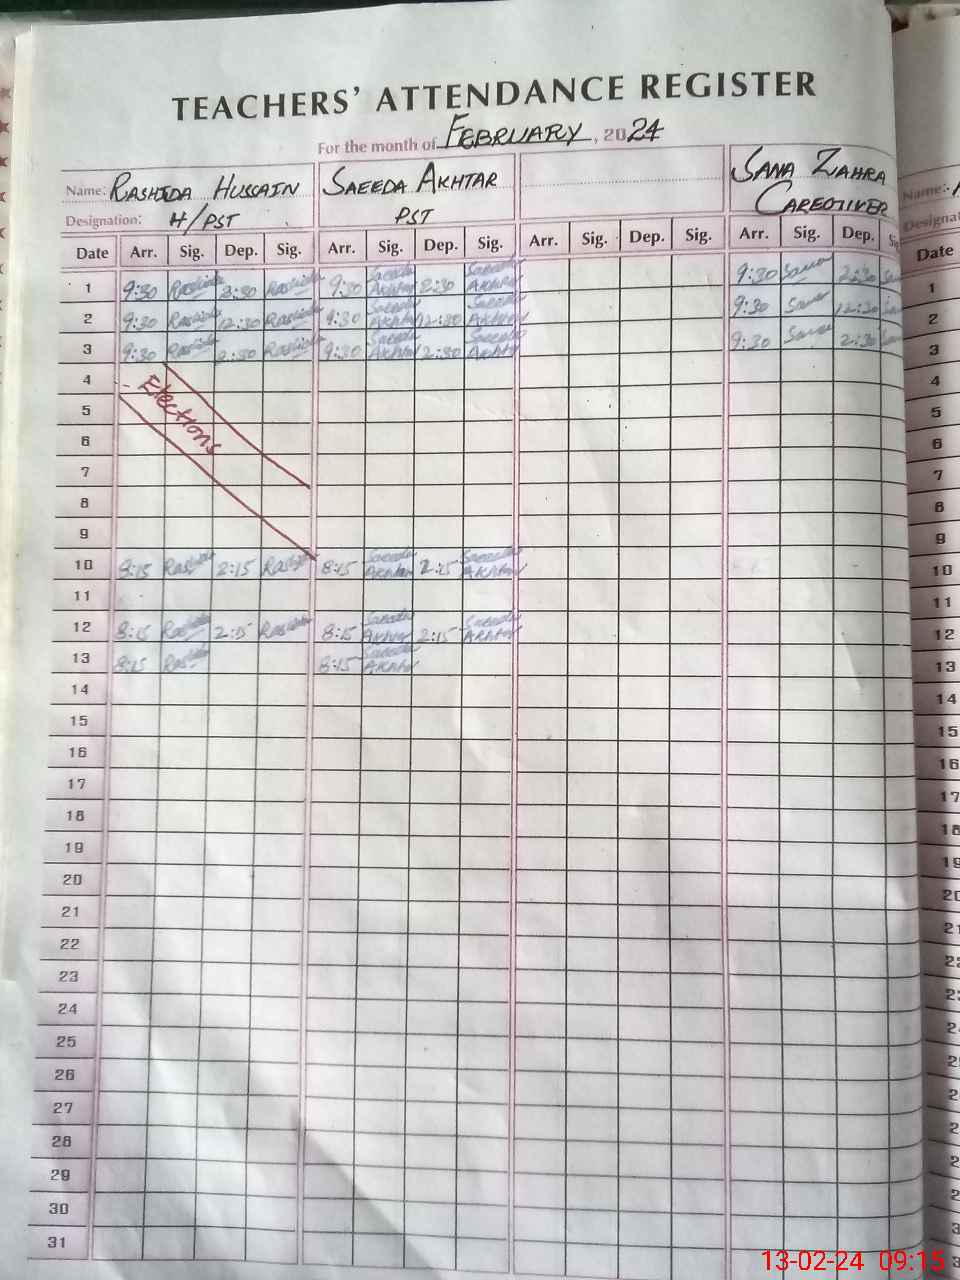 TEACHERS' ATTENDANCE REGISTER
For the month of FEBRUARY, 2024
Name: RASHIDA HUSSAIN SAEEDA AKHTAR SANA ZAHRA
Designation: H/PST PST CAREGIVER
Date Arr. Sig. Dep. Sig. Arr. Sig. Dep. Sig. Arr. Sig. Dep. Sig. Arr. Sig. Dep.
1 9:30 Rashida 2:30 Rashida 9:30 Saeeda Akhtar 2:30 Saeeda Akhtar 9:30 Sana 2:30
2 9:30 Rashida 12:30 Rashida 9:30 Saeeda Akhtar 12:30 Saeeda Akhtar 9:30 Sana 12:30
3 9:30 Rashida 2:30 Rashida 9:30 Saeeda Akhtar 2:30 Saeeda Akhtar 9:30 Sana 2:30
4 Elections
5
6
7
8
9
10 8:15 Rashida 2:15 Rashida 8:15 Saeeda Akhtar 2:15 Saeeda Akhtar
11
12 8:15 Rashida 2:15 Rashida 8:15 Saeeda Akhtar 2:15 Saeeda Akhtar
13 8:15 Rashida 8:15 Saeeda Akhtar
14
15
16
17
18
19
20
21
22
23
24
25
26
27
28
29
30
31
Name:
Date
1
2
3
4
5
6
7
8
9
10
11
12
13
14
15
16
17
13-02-24 09:15